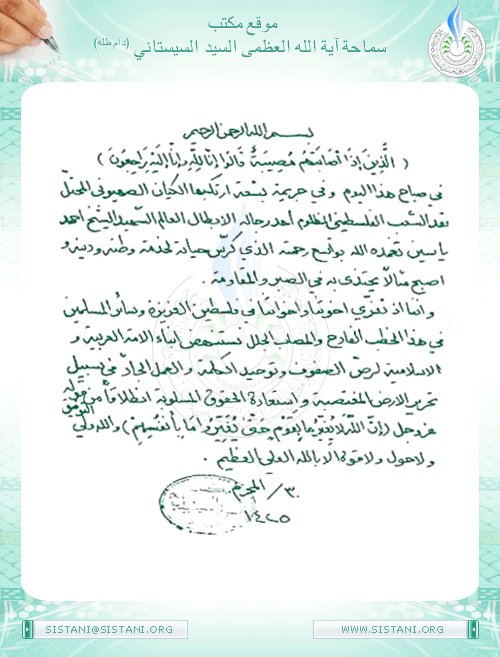 موقع مكتب
سماحة آية الله العظمى السيد السيستاني (دام ظله)
بسم الله الرحمن الرحيم
( الَّذِينَ إِذَا أَصَابَتْهُم مُصِيبَةٌ قَالُوا إِنَّا لِلَّهِ وَإِنَّا إِلَيْهِ رَاجِعُونَ )
في صباح هذا اليوم وفي جريمة بشعة ارتكبها الكيان الصهيوني المحتلّ
فقد الشعب الفلسطيني المظلوم أحد رجاله الابطال العالم الشهيد الشيخ احمد
ياسين تغمده الله بواسع رحمته الذي كرّس حياته لخدمة وطنه ودينه و
اصبح مثالاً يحتذى به في الصبر والمقاومة .
و اننا اذ نعزي اخوتنا واخواتنا في فلسطين العزيزة وسائر المسلمين
في هذا الخطب الفادح والمصاب الجلل نستنهض ابناء الامة العربية و
الاسلامية لرصّ الصفوف وتوحيد الكلمة والعمل الجادّ في سبيل
تحرير الارض المغتصبة و استعادة الحقوق المسلوبة انطلاقاً من قوله
عز وجل (إِنَّ اللَّهَ لَا يُغَيِّرُ مَا بِقَوْمٍ حَتَّى يُغَيِّرُوا مَا بِأَنْفُسِهِمْ) والله ولي التوفيق
و لا حول ولا قوة الا بالله العلي العظيم .
٣٠/ المحرم
١٤٢٥
SISTANI@SISTANI.ORG
WWW.SISTANI.ORG